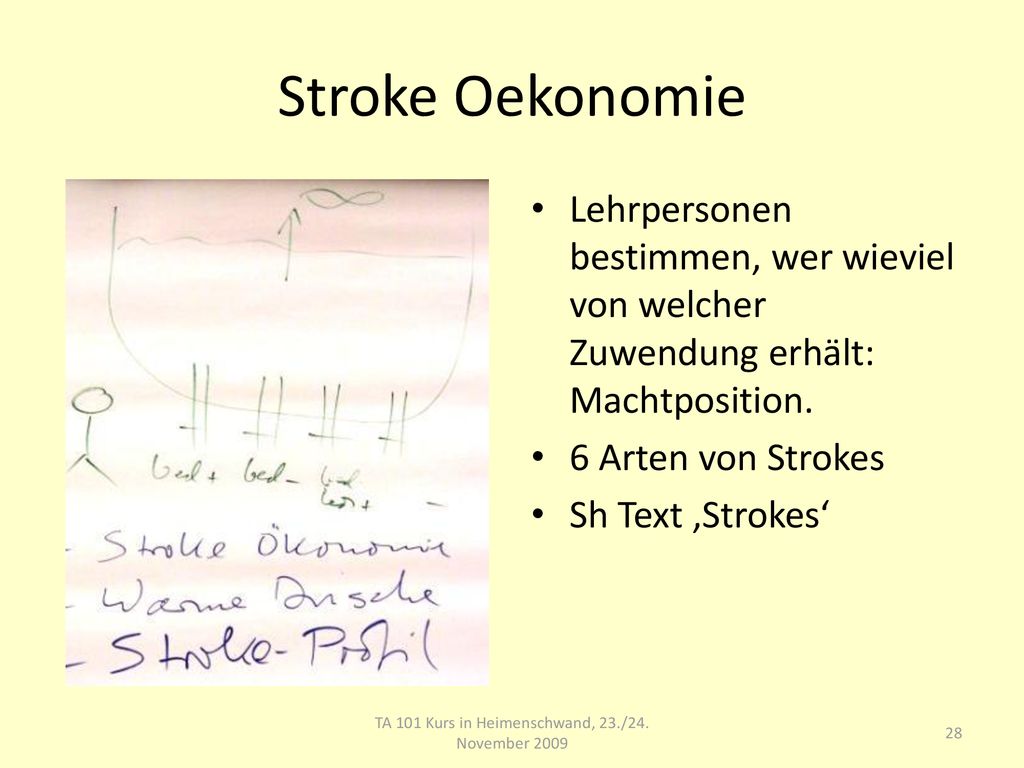 Stroke Oekonomie
∞
bed + bed -
+ -
- Stroke Ökonomie
- Warme Dusche
- Stroke-Profil
• Lehrpersonen
bestimmen, wer wieviel
von welcher
Zuwendung erhält:
Machtposition.
• 6 Arten von Strokes
• Sh Text ‚Strokes‘
TA 101 Kurs in Heimenschwand, 23./24.
November 2009
28